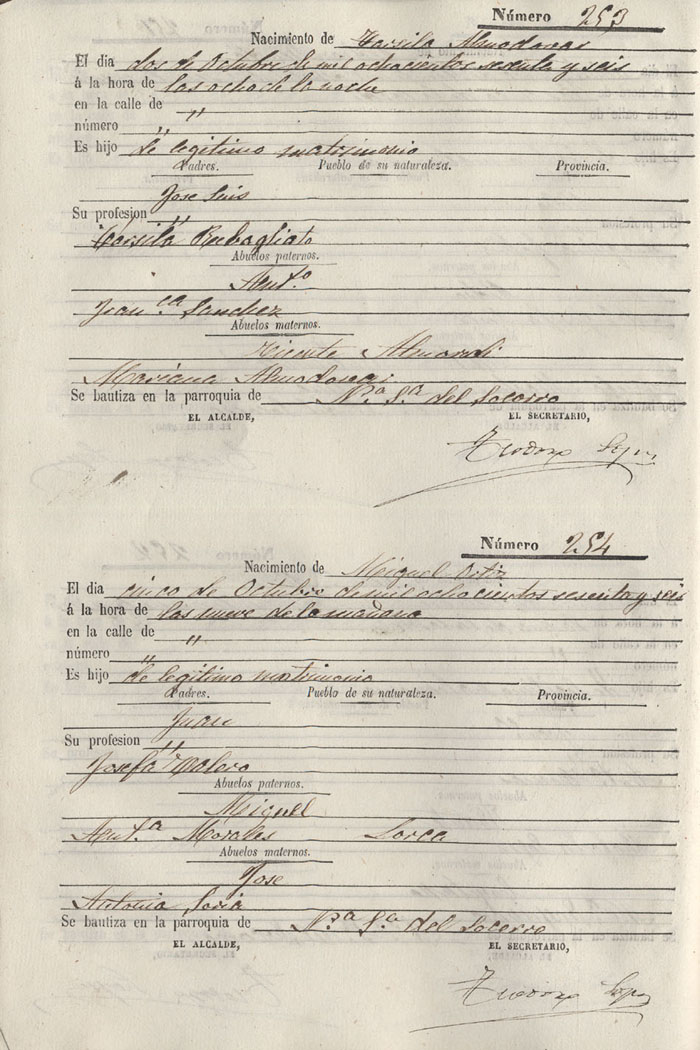 Número 253
Nacimiento de Tarsila Almodovar
El dia dos de Octubre de mil ochocientos sesenta y seis
á la hora de las ocho de la noche
en la calle de "
número "
Es hijo de legitimo matrimonio
Padres. Pueblo de su naturaleza. Provincia.
Jose Luis
Su profesion "
Tarsila Rubagliato
Abuelos paternos.
Ant.o
Fran.ca Sanchez
Abuelos maternos.
Vicente
Mariana Almodovar
Se bautiza en la parroquia de N.a S.a del Socorro
EL ALCALDE, EL SECRETARIO,
Teodoro
Número 254
Nacimiento de Miguel Ortiz
El dia cinco de Octubre de mil ochocientos sesenta y seis
á la hora de las nueve de la mañana
en la calle de "
número "
Es hijo de legitimo matrimonio
Padres. Pueblo de su naturaleza. Provincia.
Juan
Su profesion "
Josefa Molero
Abuelos paternos.
Miguel
Ant.a Morales Lorca
Abuelos maternos.
Jose
Antonia Soria
Se bautiza en la parroquia de N.a S.a del Socorro
EL ALCALDE, EL SECRETARIO,
Teodoro